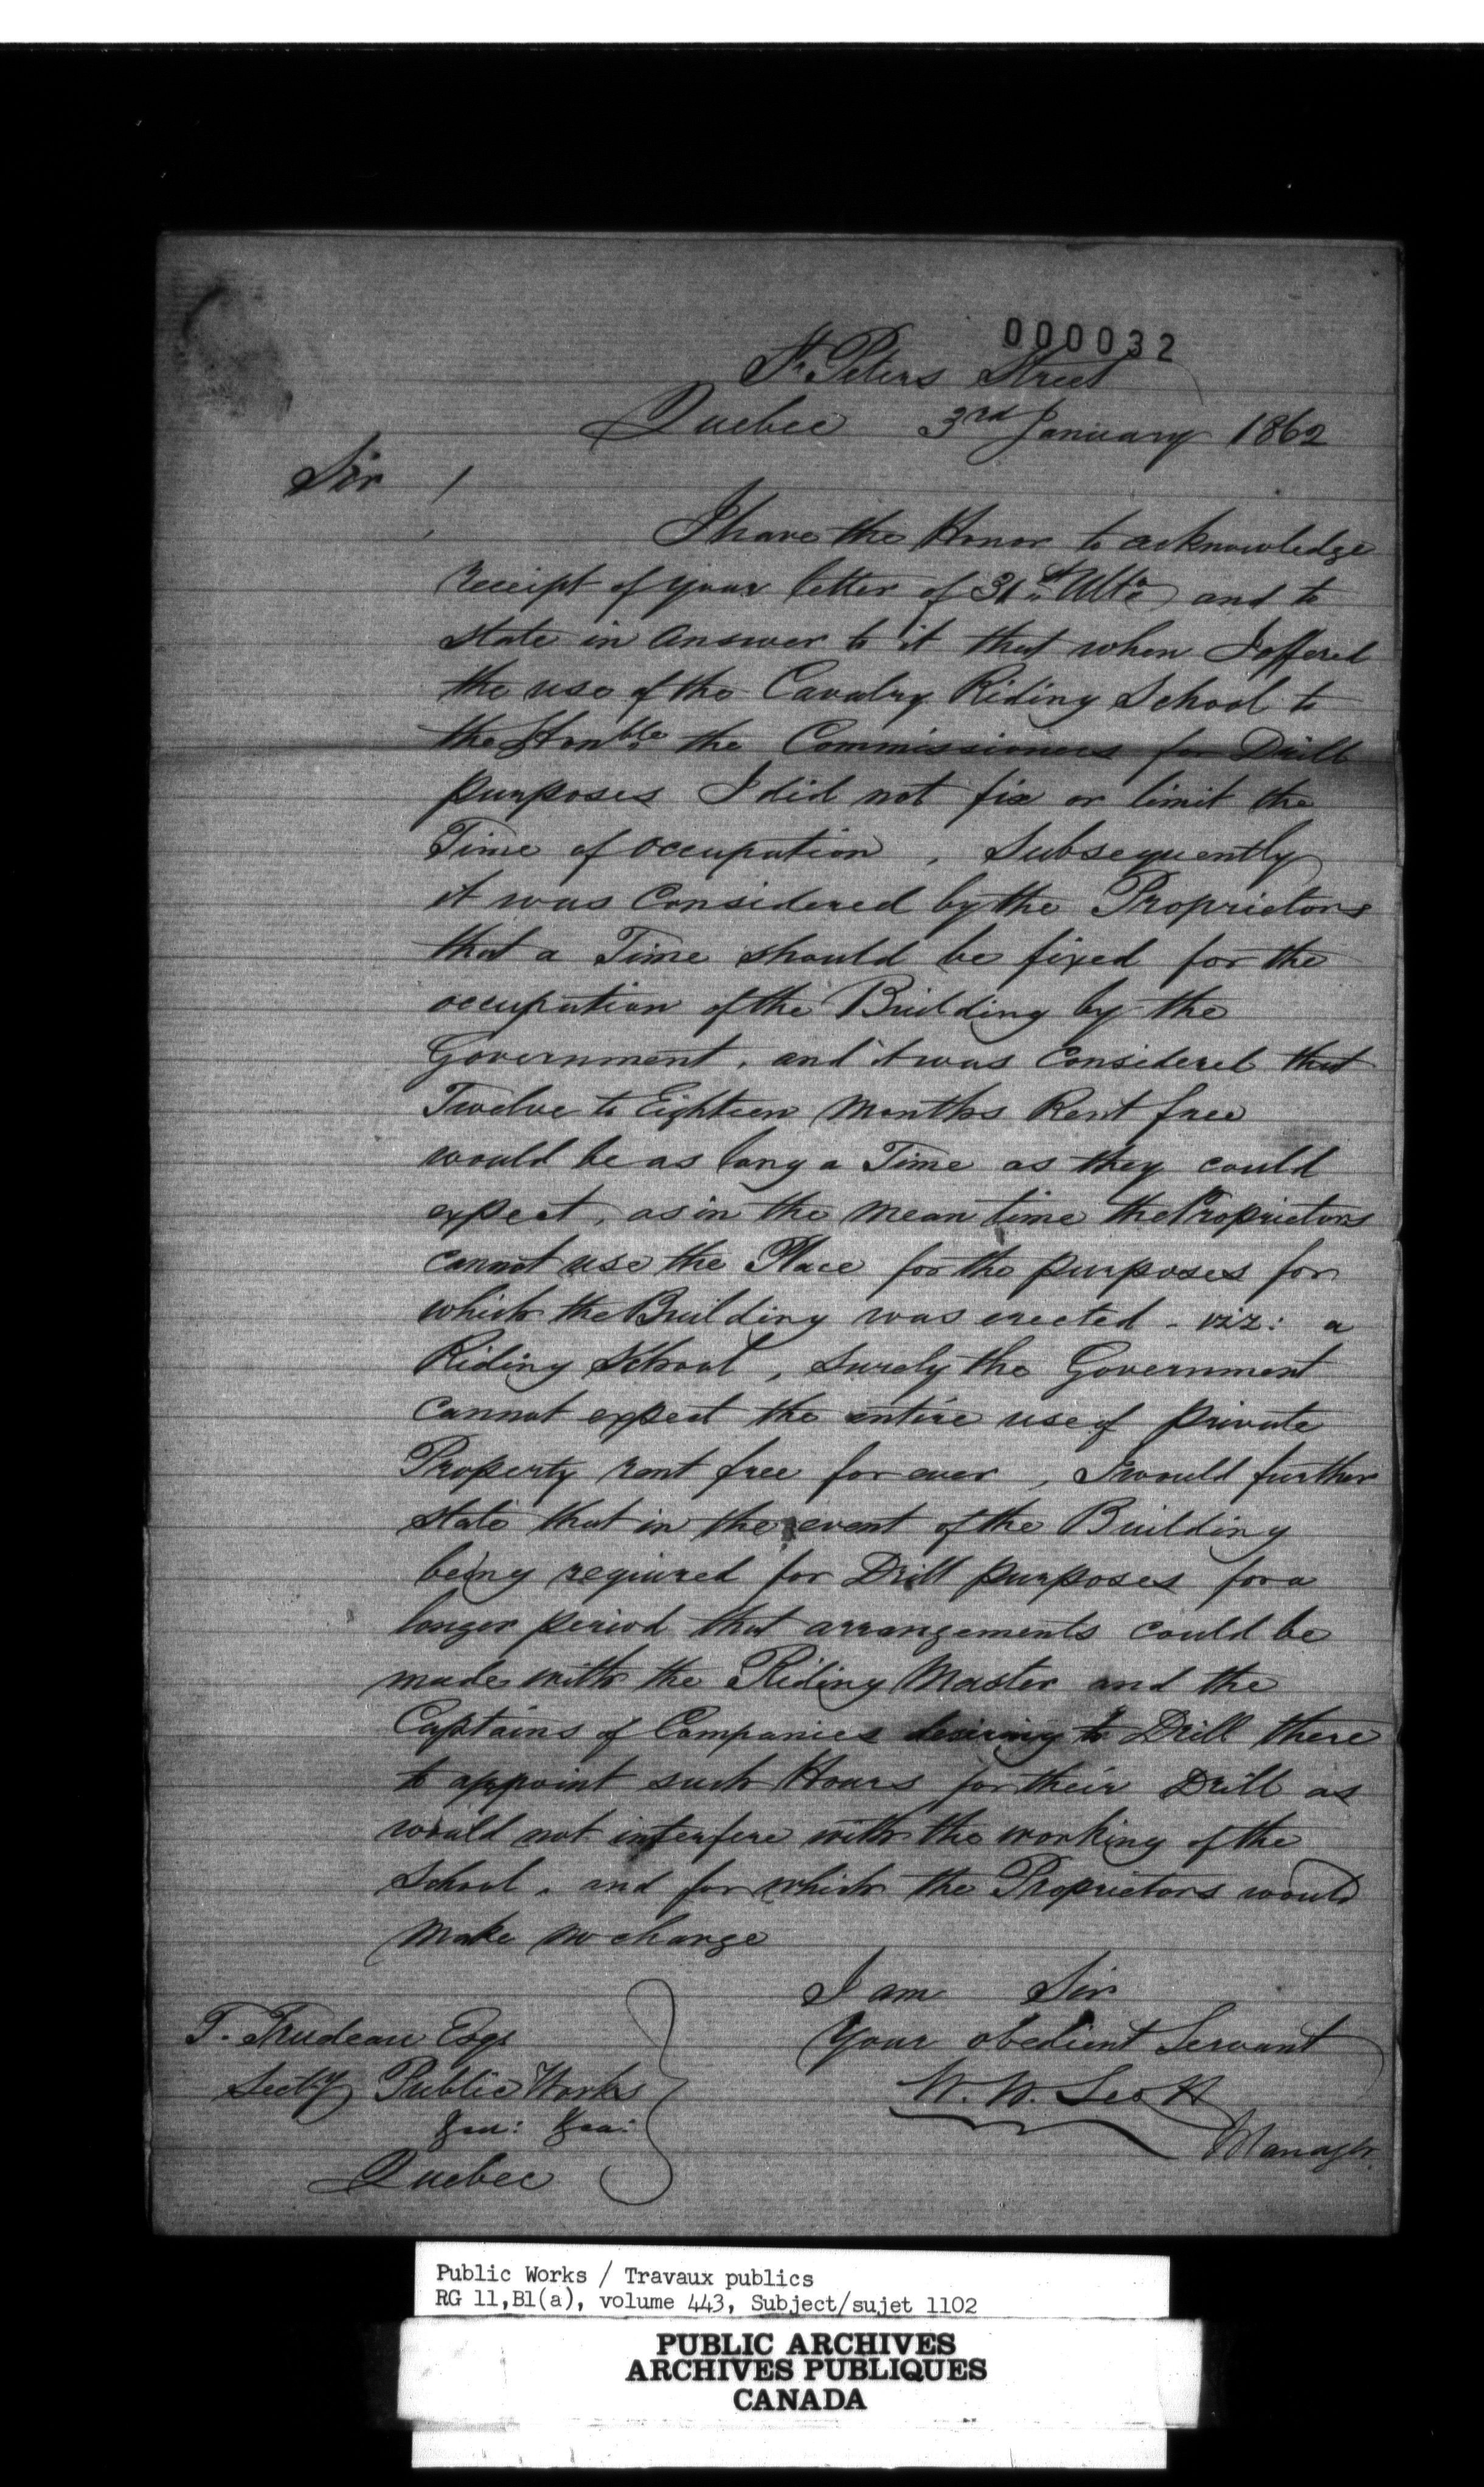 000032
St. Peters Street
Quebec 3rd January 1862
Sir /
I have the Honor to acknowledge
receipt of your letter of 31st Ulto and to
state in answer to it that when I offered
the use of the Cavalry Riding School to
the Honble the Commissioners for Drill
purposes I did not fix or limit the
Time of occupation, Subsequently
it was Considered by the Proprietors
that a Time should be fixed for the
occupation of the Building by the
Government, and it was Considered that
Twelve to Eighteen Months Rent free
would be as long a Time as they could
expect, as in the mean time the Proprietors
cannot use the Place for the purposes for
which the Building was erected - viz: a
Riding School, Surely the Government
cannot expect the entire use of private
Property rent free for ever, I would further
state that in the event of the Building
being required for Drill purposes for a
longer period that arrangements could be
made with the Riding Master and the
Captains of Companies desiring to Drill there
to appoint such Hours for their Drill as
would not interfere with the working of the
School, and for which the Proprietors would
make no charge
I am Sir
Your obedient Servant
W. W. Scott
Manager
T. Trudeau Esqr
Secty Public Works
&ca: &ca:
Quebec
Public Works / Travaux publics
RG 11,B1(a), volume 443, Subject/sujet 1102
PUBLIC ARCHIVES
ARCHIVES PUBLIQUES
CANADA